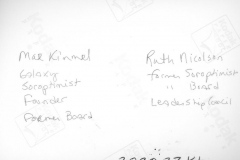 Mae Kimmel
Galaxy
Soroptimist
Founder
Former Board
Ruth Nicolsen
former Soroptimist
" Board
Leadership Council